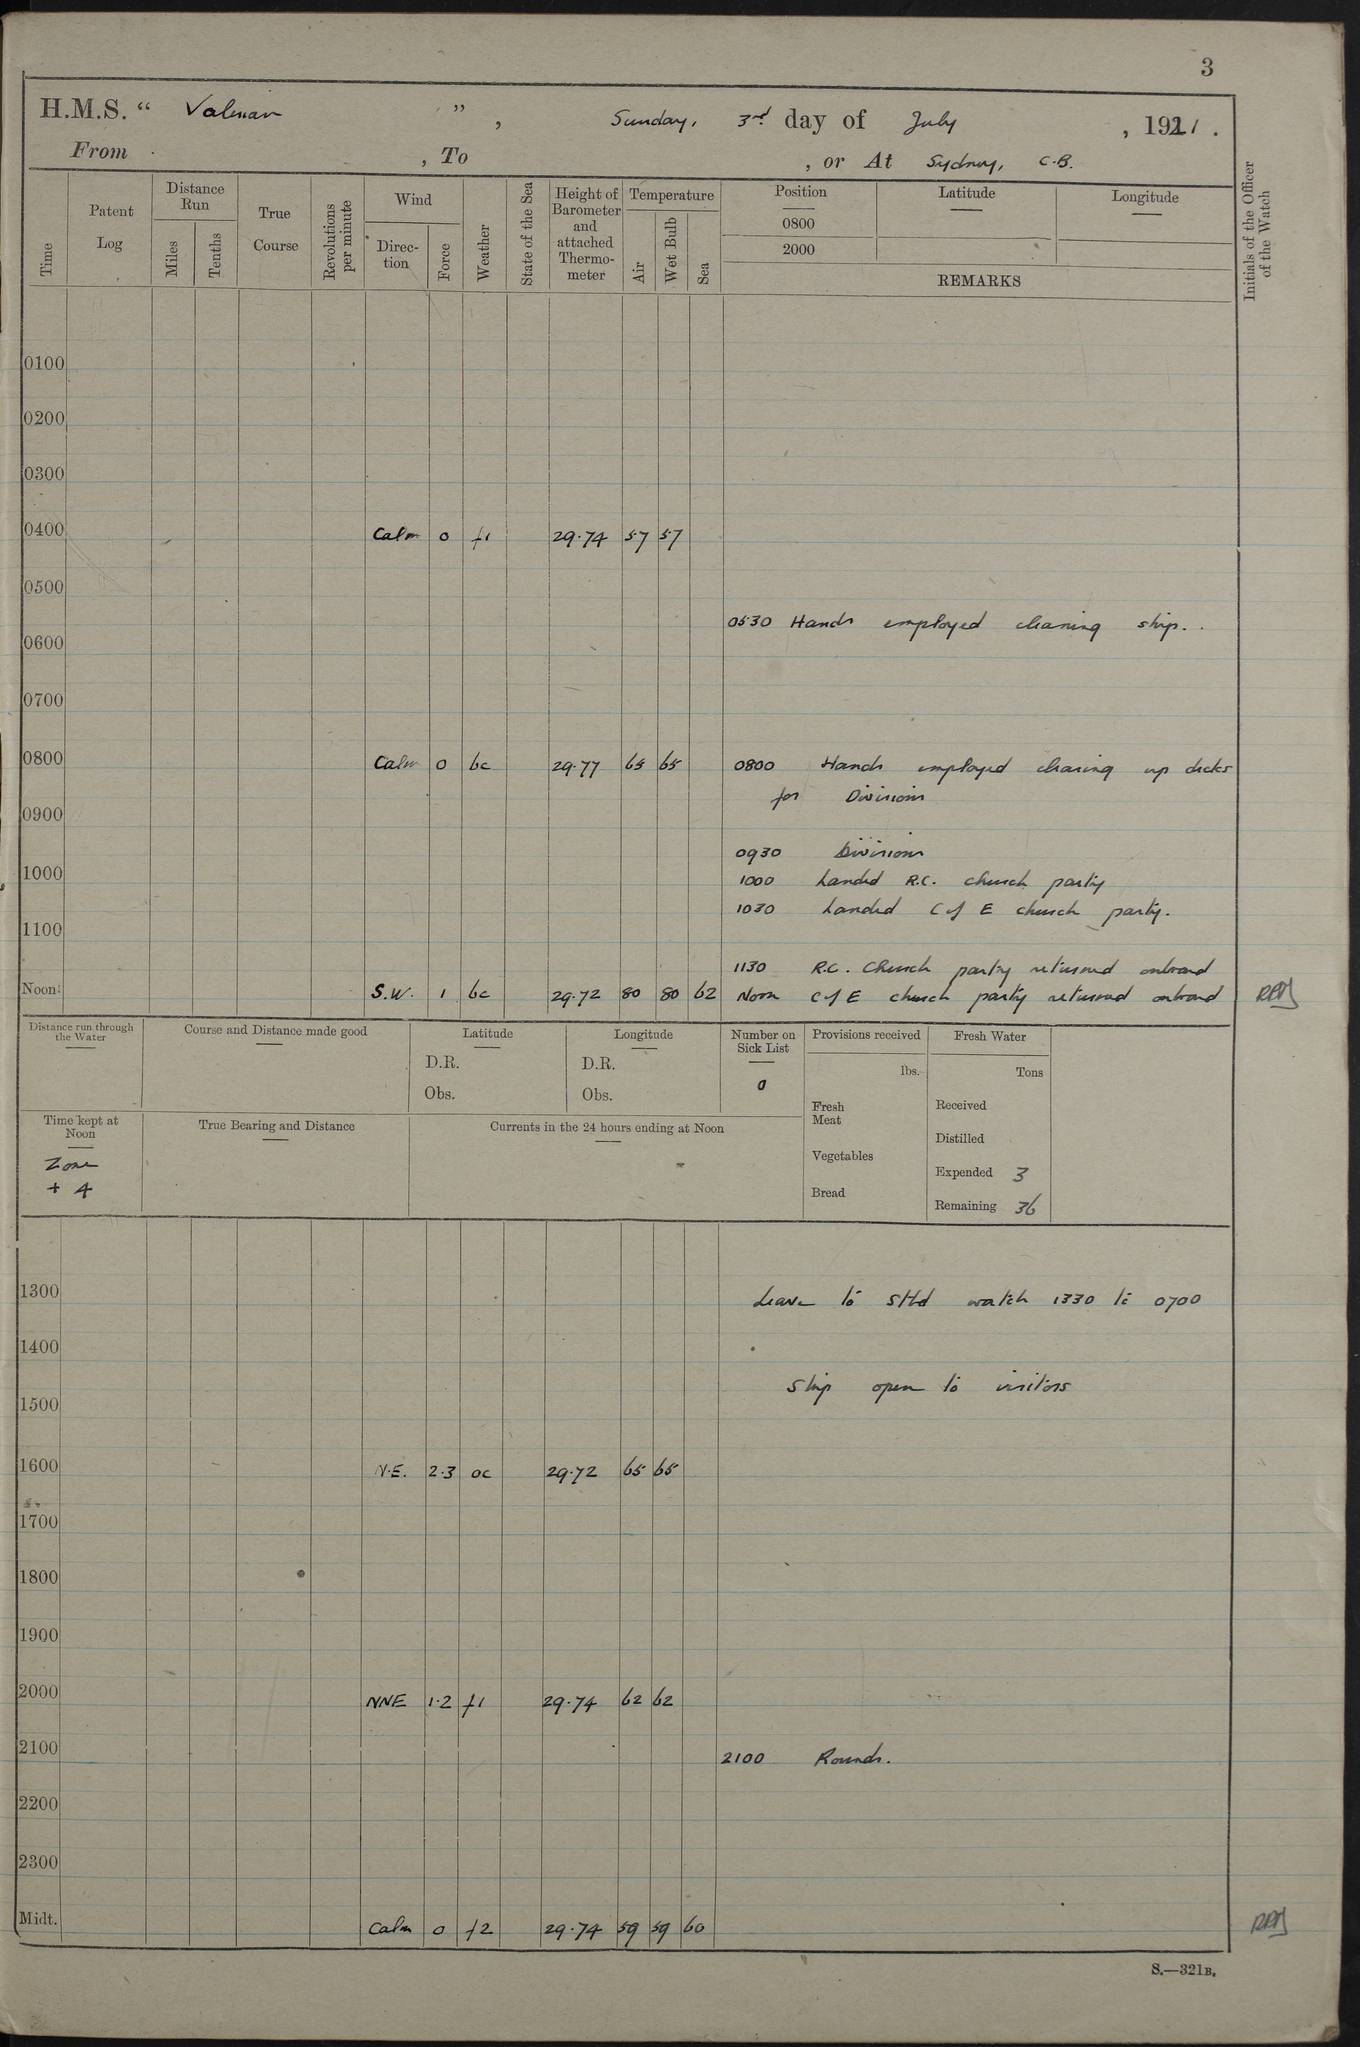 3
H.M.S. “ Valerian ” , Sunday, 3rd day of July , 1921.
From , To , or At Sydney, C.B.
Time
Patent Log
Distance Run
Miles
Tenths
True Course
Revolutions per minute
Wind
Direc-tion
Force
Weather
State of the Sea
Height of Barometer and attached Thermo-meter
Temperature
Air
Wet Bulb
Sea
Position
0800
2000
Latitude
Longitude
REMARKS
Initials of the Officer of the Watch
0100
0200
0300
0400 Calm 0 f1 29.74 57 57
0500
0530 Hands employed cleaning ship.
0600
0700
0800 Calm 0 bc 29.77 65 65 0800 Hands employed clearing up decks
for Divisions
0900
0930 Divisions
1000 1000 Landed R.C. church party
1030 Landed C of E church party.
1100
1130 R.C. Church party returned onboard
Noon S.W. 1 bc 29.72 80 80 62 Noon C of E church party returned onboard
Distance run through the Water
Course and Distance made good
Latitude
D.R.
Obs.
Longitude
D.R.
Obs.
Number on Sick List
0
Provisions received
lbs.
Fresh Meat
Vegetables
Bread
Fresh Water
Tons
Received
Distilled
Expended 3
Remaining 36
Time kept at Noon
Zone
+ 4
True Bearing and Distance
Currents in the 24 hours ending at Noon
1300 Leave to Stbd watch 1330 to 0700
1400
Ship open to visitors
1500
1600 N.E. 2.3 oc 29.72 65 65
1700
1800
1900
2000 NNE 1.2 f1 29.74 62 62
2100 2100 Rounds.
2200
2300
Midt. Calm 0 f2 29.74 59 59 60
S.—321B.